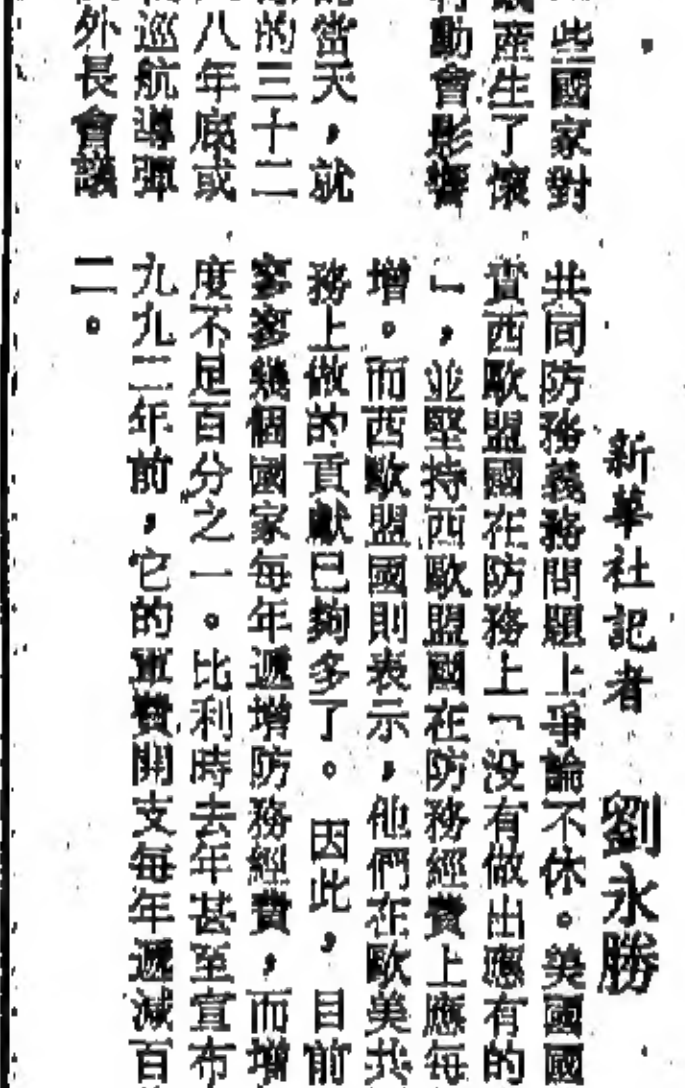 些國家對
產生了懷
動會影響
當天，就
的三十二
八年底或
巡航導彈
外長會議
新華社記者 劉永勝
共同防務義務問題上爭論不休。美國國
責西歐盟國在防務上「没有做出應有的
」，並堅持西歐盟國在防務經費上應每
增。而西歐盟國則表示，他們在歐美共
務上做的貢獻已夠多了。因此，目前
寥寥幾個國家每年遞增防務經費，而增
度不足百分之一。比利時去年甚至宣布
九九二年前，它的軍費開支每年遞減百
二。